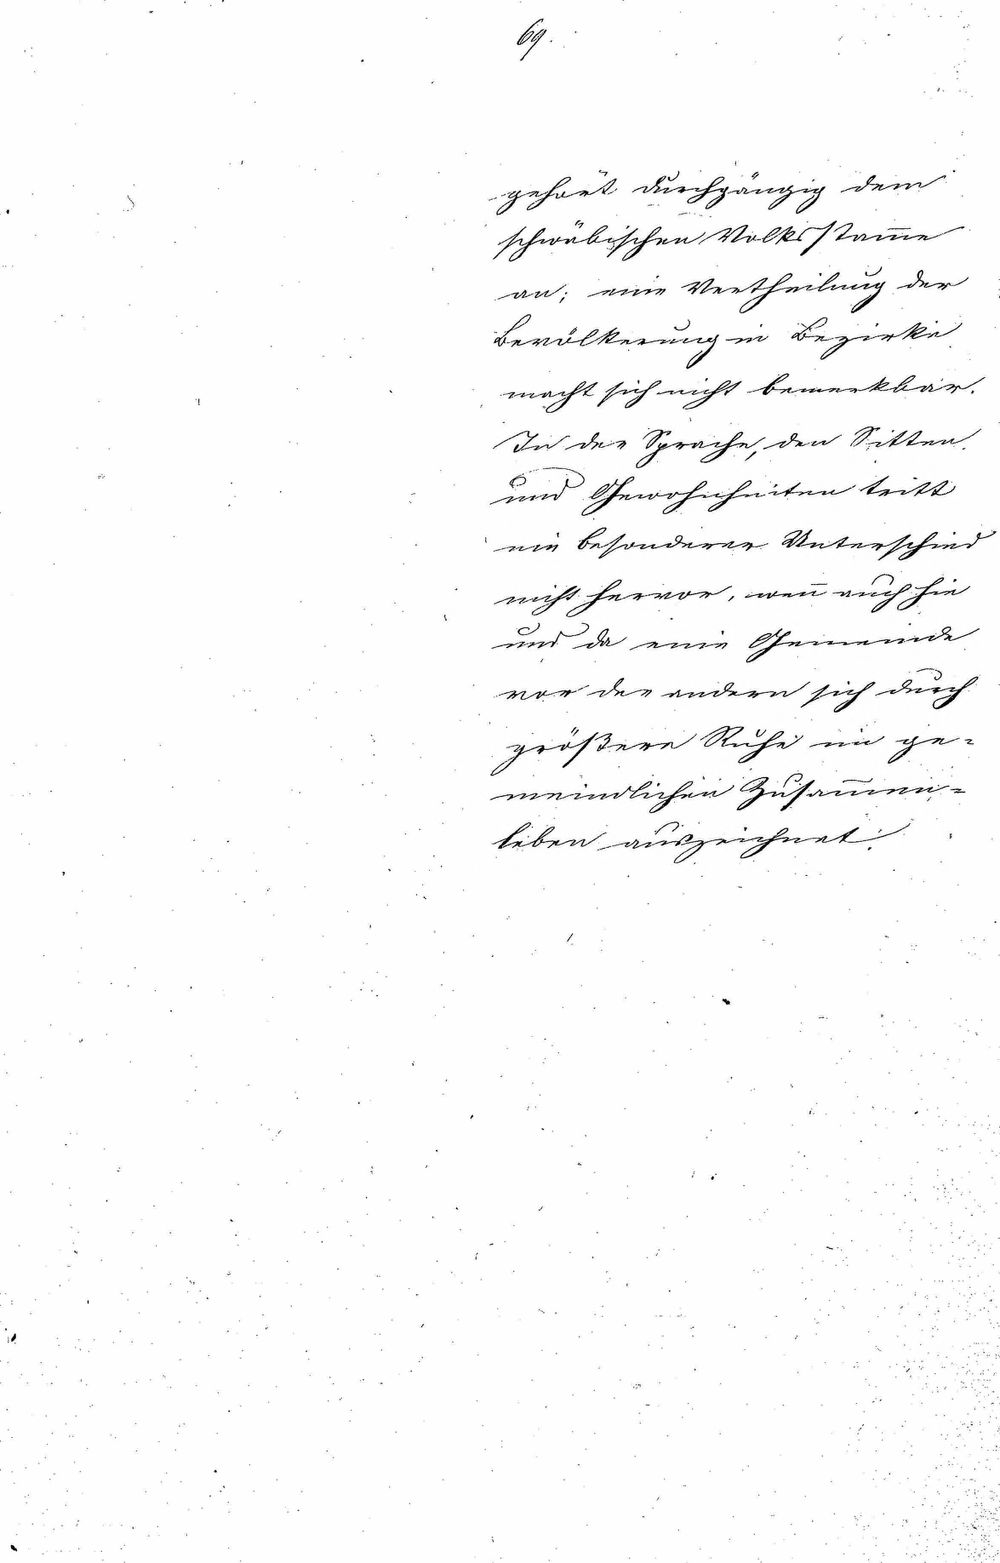 69.
gehört durchgängig dem
schwäbischen Volksstam̅e
an; eine Vertheilung der
Bevölkerung in Bezirke
macht sich nicht bemerkbar.
In der Sprache, den Sitten
und Gewohnheiten tritt
ein besonderer Unterschied
nicht hervor, wen̅ auch hie
und da eine Gemeinde
vor der andern sich durch
größere Ruhe im ge-
meindlichen Zusam̅en-
leben auszeichnet.